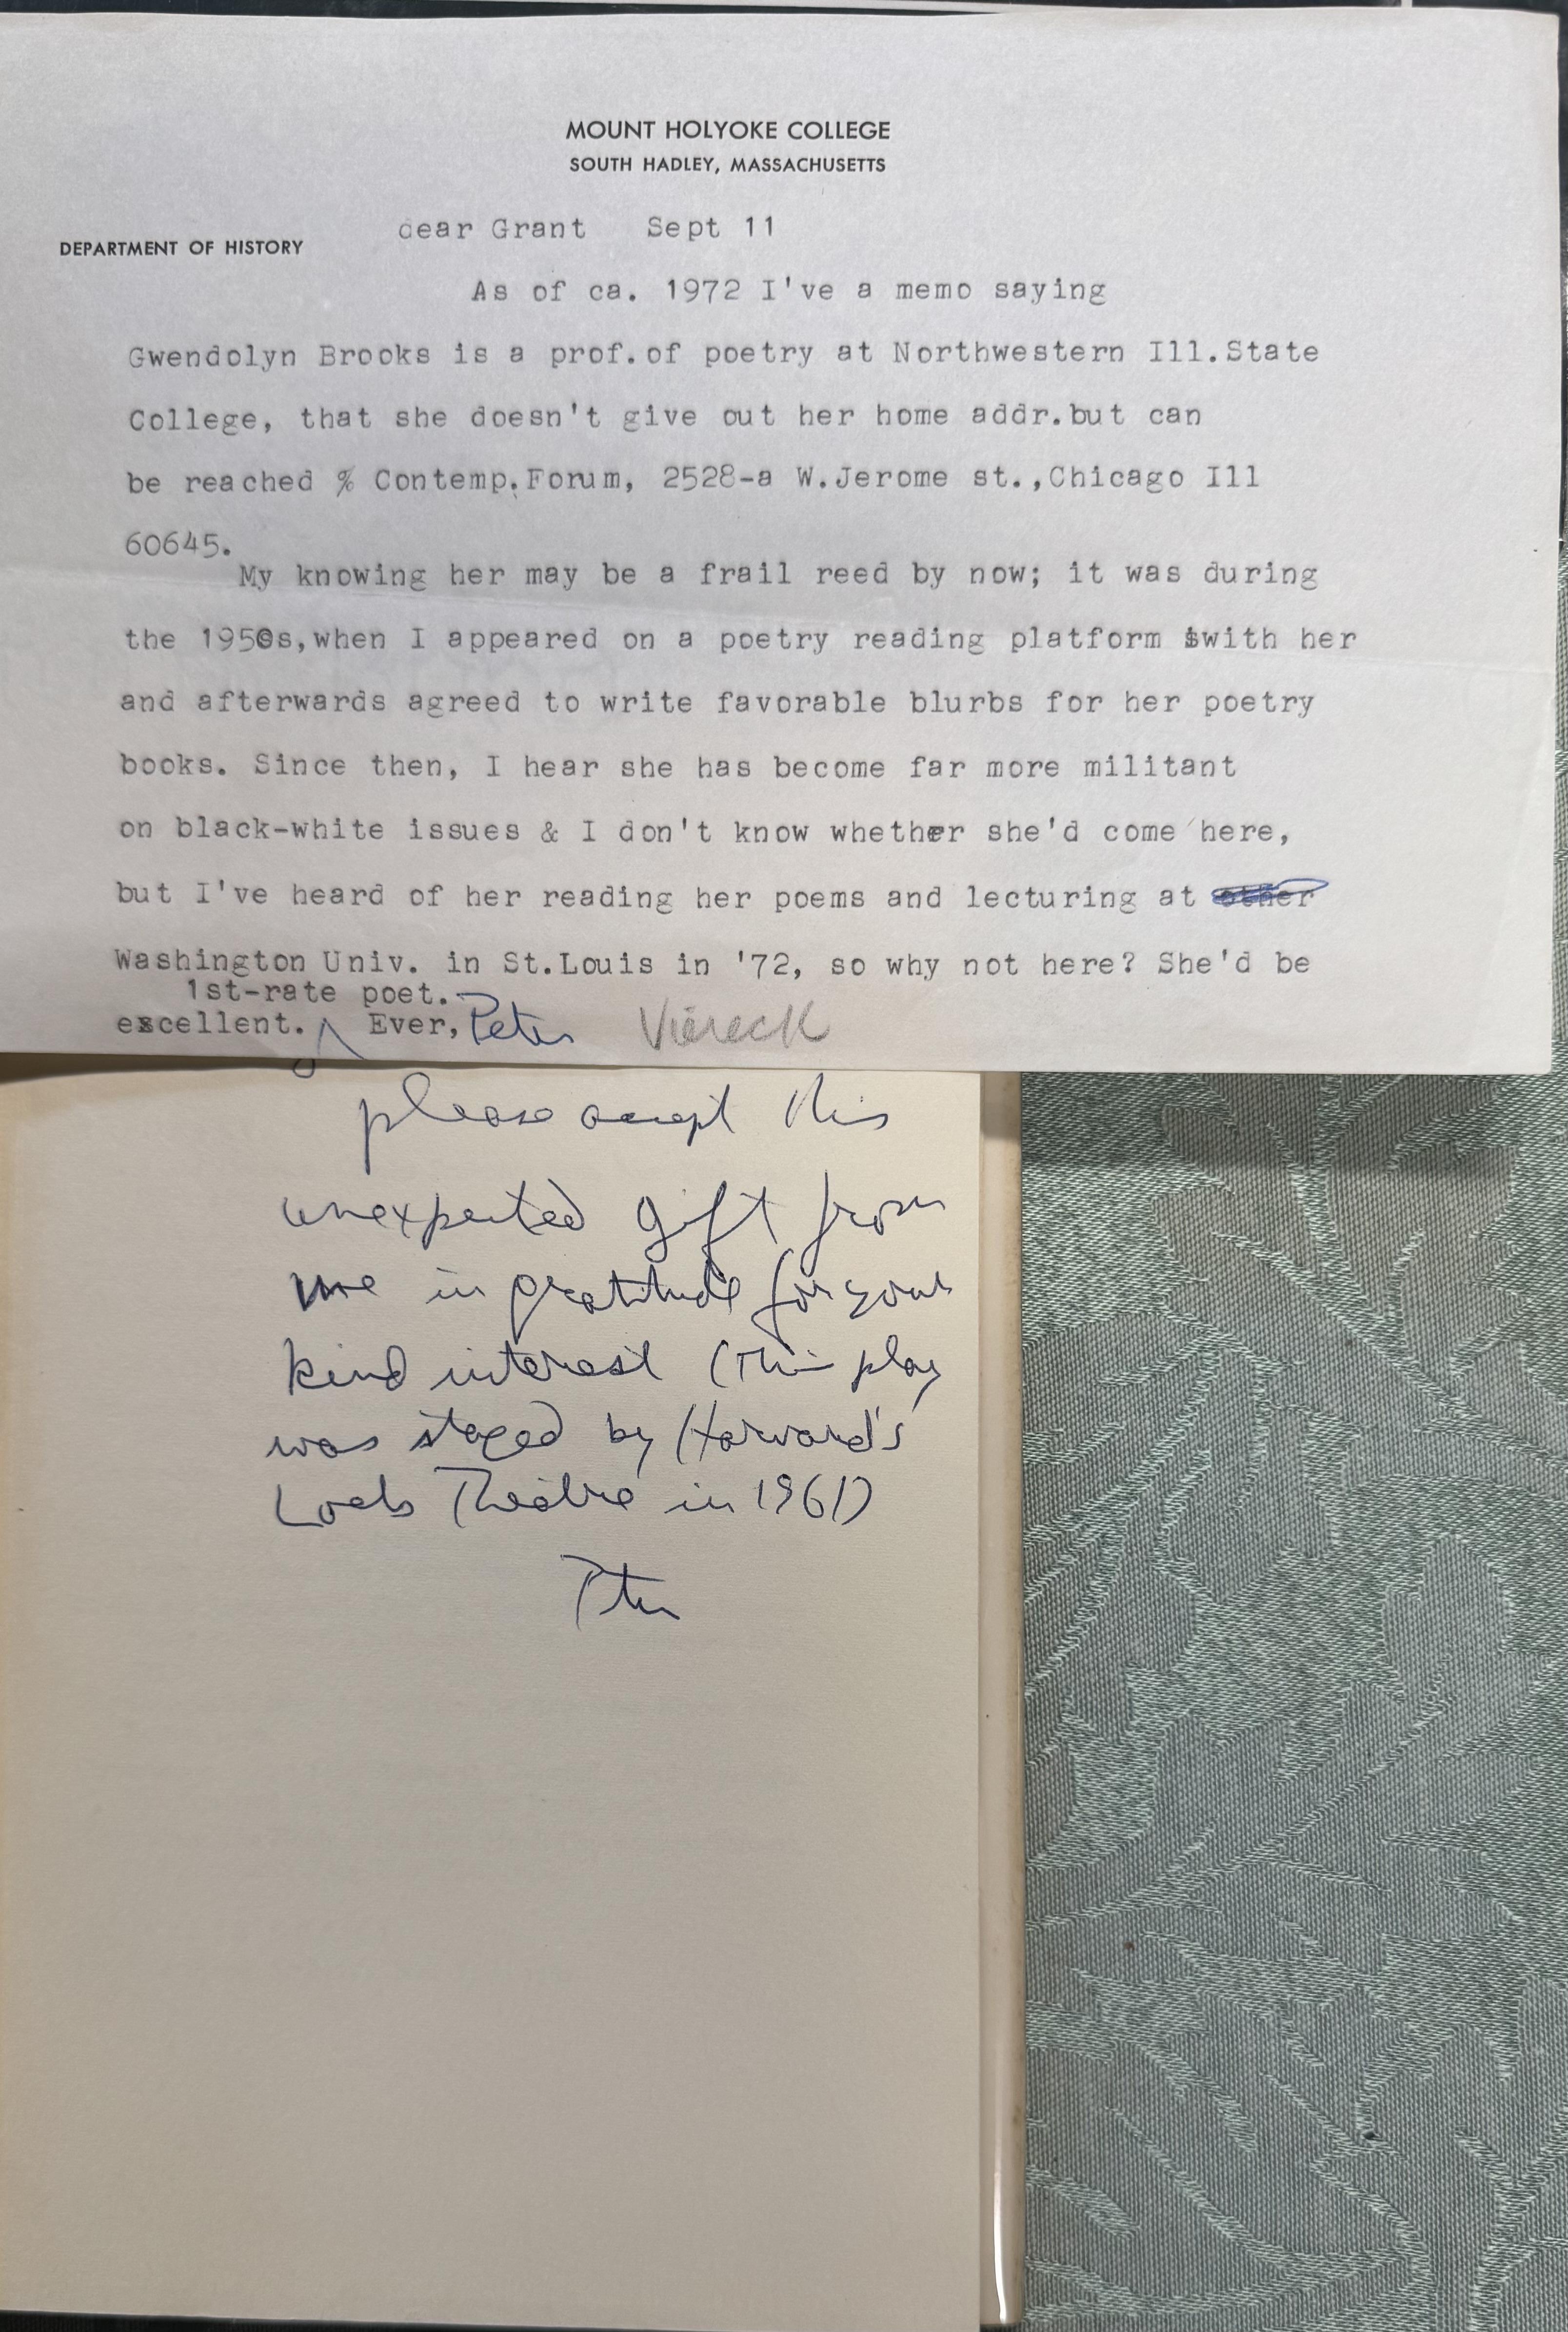 MOUNT HOLYOKE COLLEGE
SOUTH HADLEY, MASSACHUSETTS
dear Grant Sept 11
DEPARTMENT OF HISTORY
As of ca. 1972 I've a memo saying
Gwendolyn Brooks is a prof.of poetry at Northwestern Ill.State
College, that she doesn't give out her home addr.but can
be reached % Contemp.Forum, 2528-a W.Jerome st.,Chicago Ill
60645.
My knowing her may be a frail reed by now; it was during
the 1950s,when I appeared on a poetry reading platform with her
and afterwards agreed to write favorable blurbs for her poetry
books. Since then, I hear she has become far more militant
on black-white issues & I don't know whether she'd come here,
but I've heard of her reading her poems and lecturing at other
Washington Univ. in St.Louis in '72, so why not here? She'd be
1st-rate poet.
excellent. Ever, Peter Viereck
please accept this
unexpected gift from
me in gratitude for your
kind interest (This play
was staged by Harvard's
Loeb Theatre in 1961)
Peter